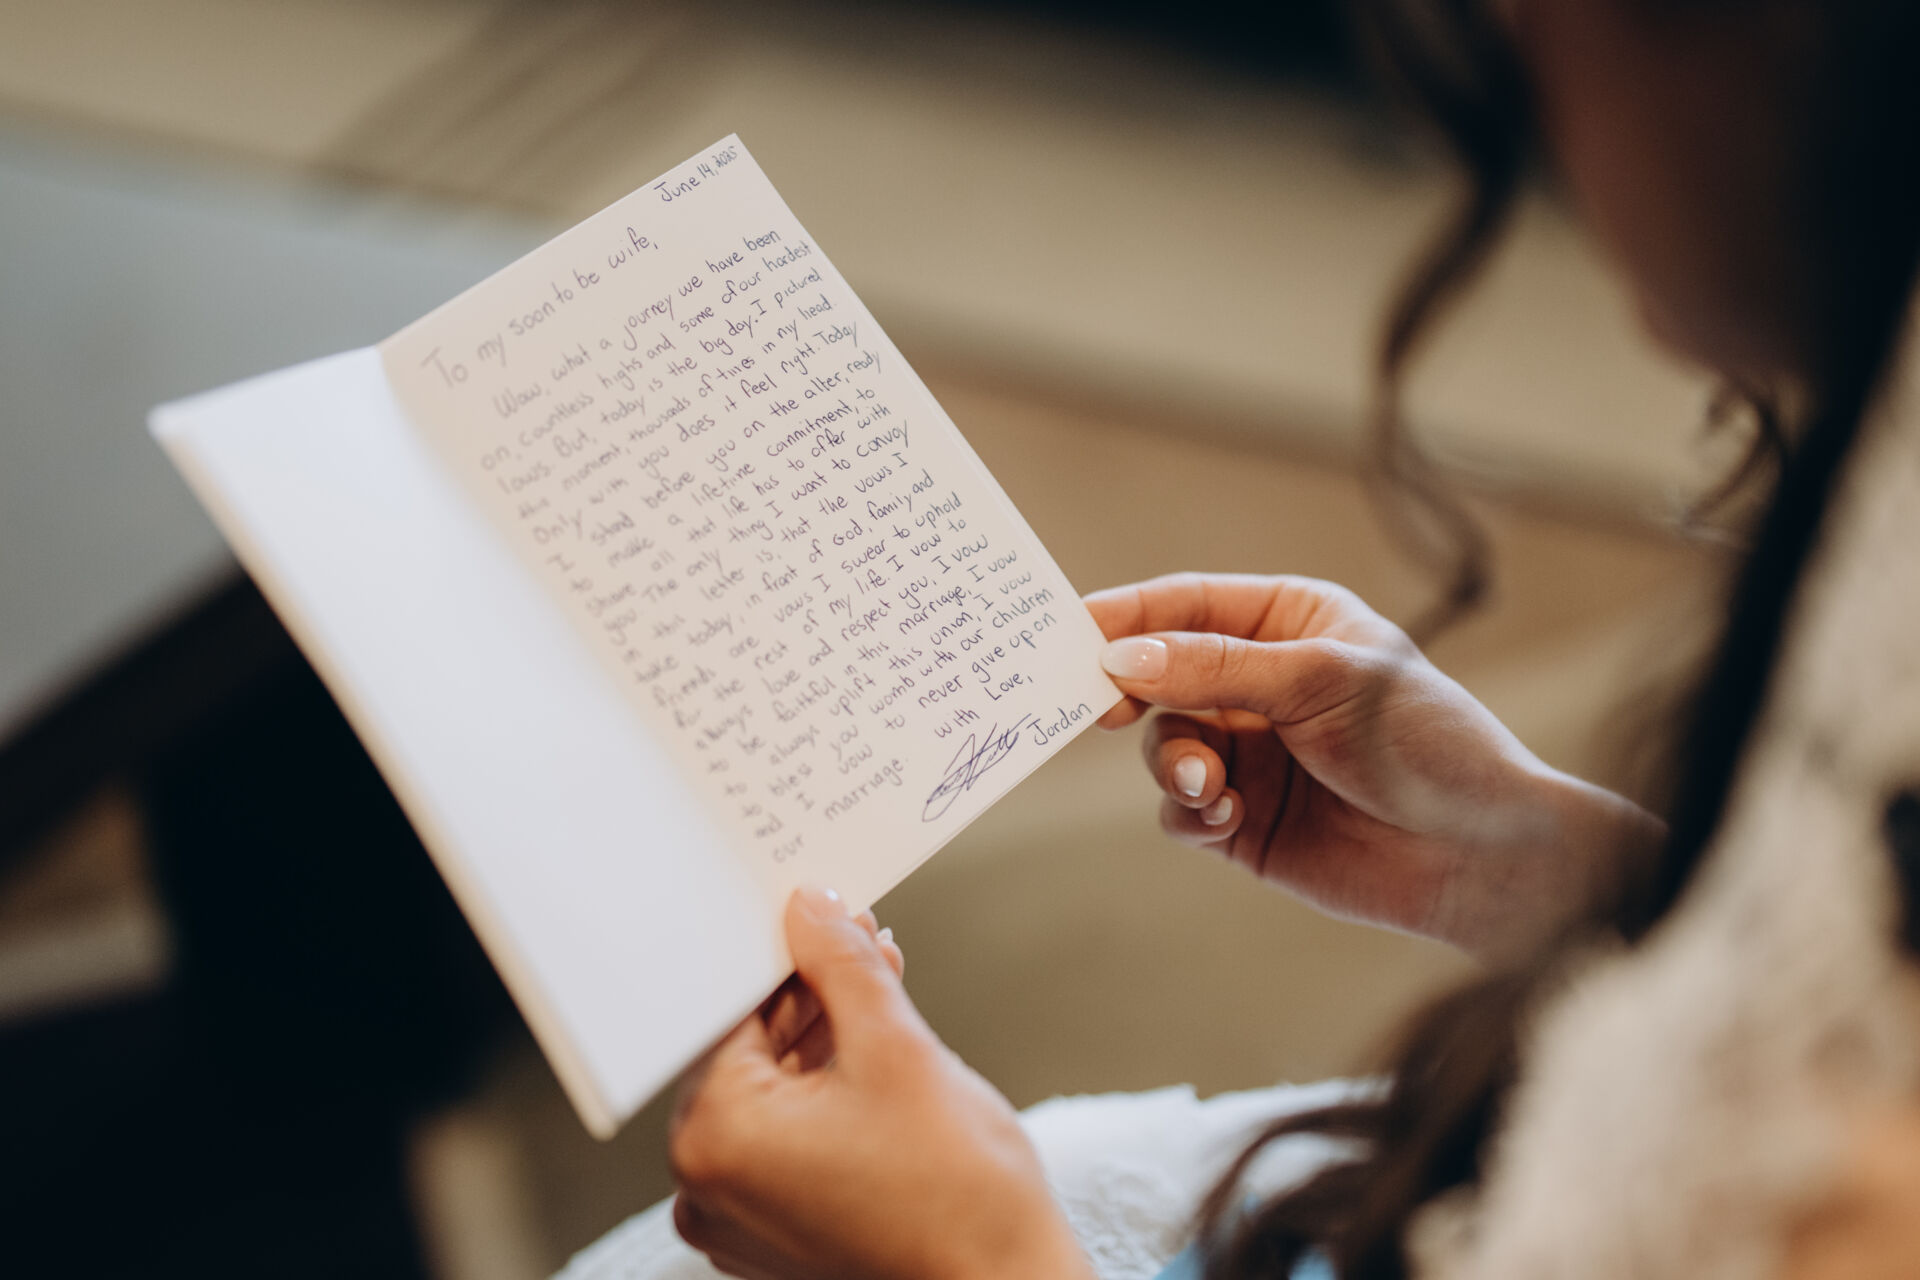 June 14, 2025
To my soon to be wife,
Wow, what a journey we have been
on, countless highs and some of our hardest
lows. But, today is the big day. I pictured
this moment, thousands of times in my head.
Only with you does it feel right. Today
I stand before you on the alter, ready
to make a lifetime commitment, to
share all that life has to offer with
you. The only thing I want to convoy
in this letter is, that the vows I
take today, in front of God, family and
friends are vows I swear to uphold
for the rest of my life. I vow to
always love and respect you, I vow
to be faithful in this marriage, I vow
to always uplift this union, I vow
to bless you womb with our children
and I vow to never give up on
our marriage. with Love,
Jordan